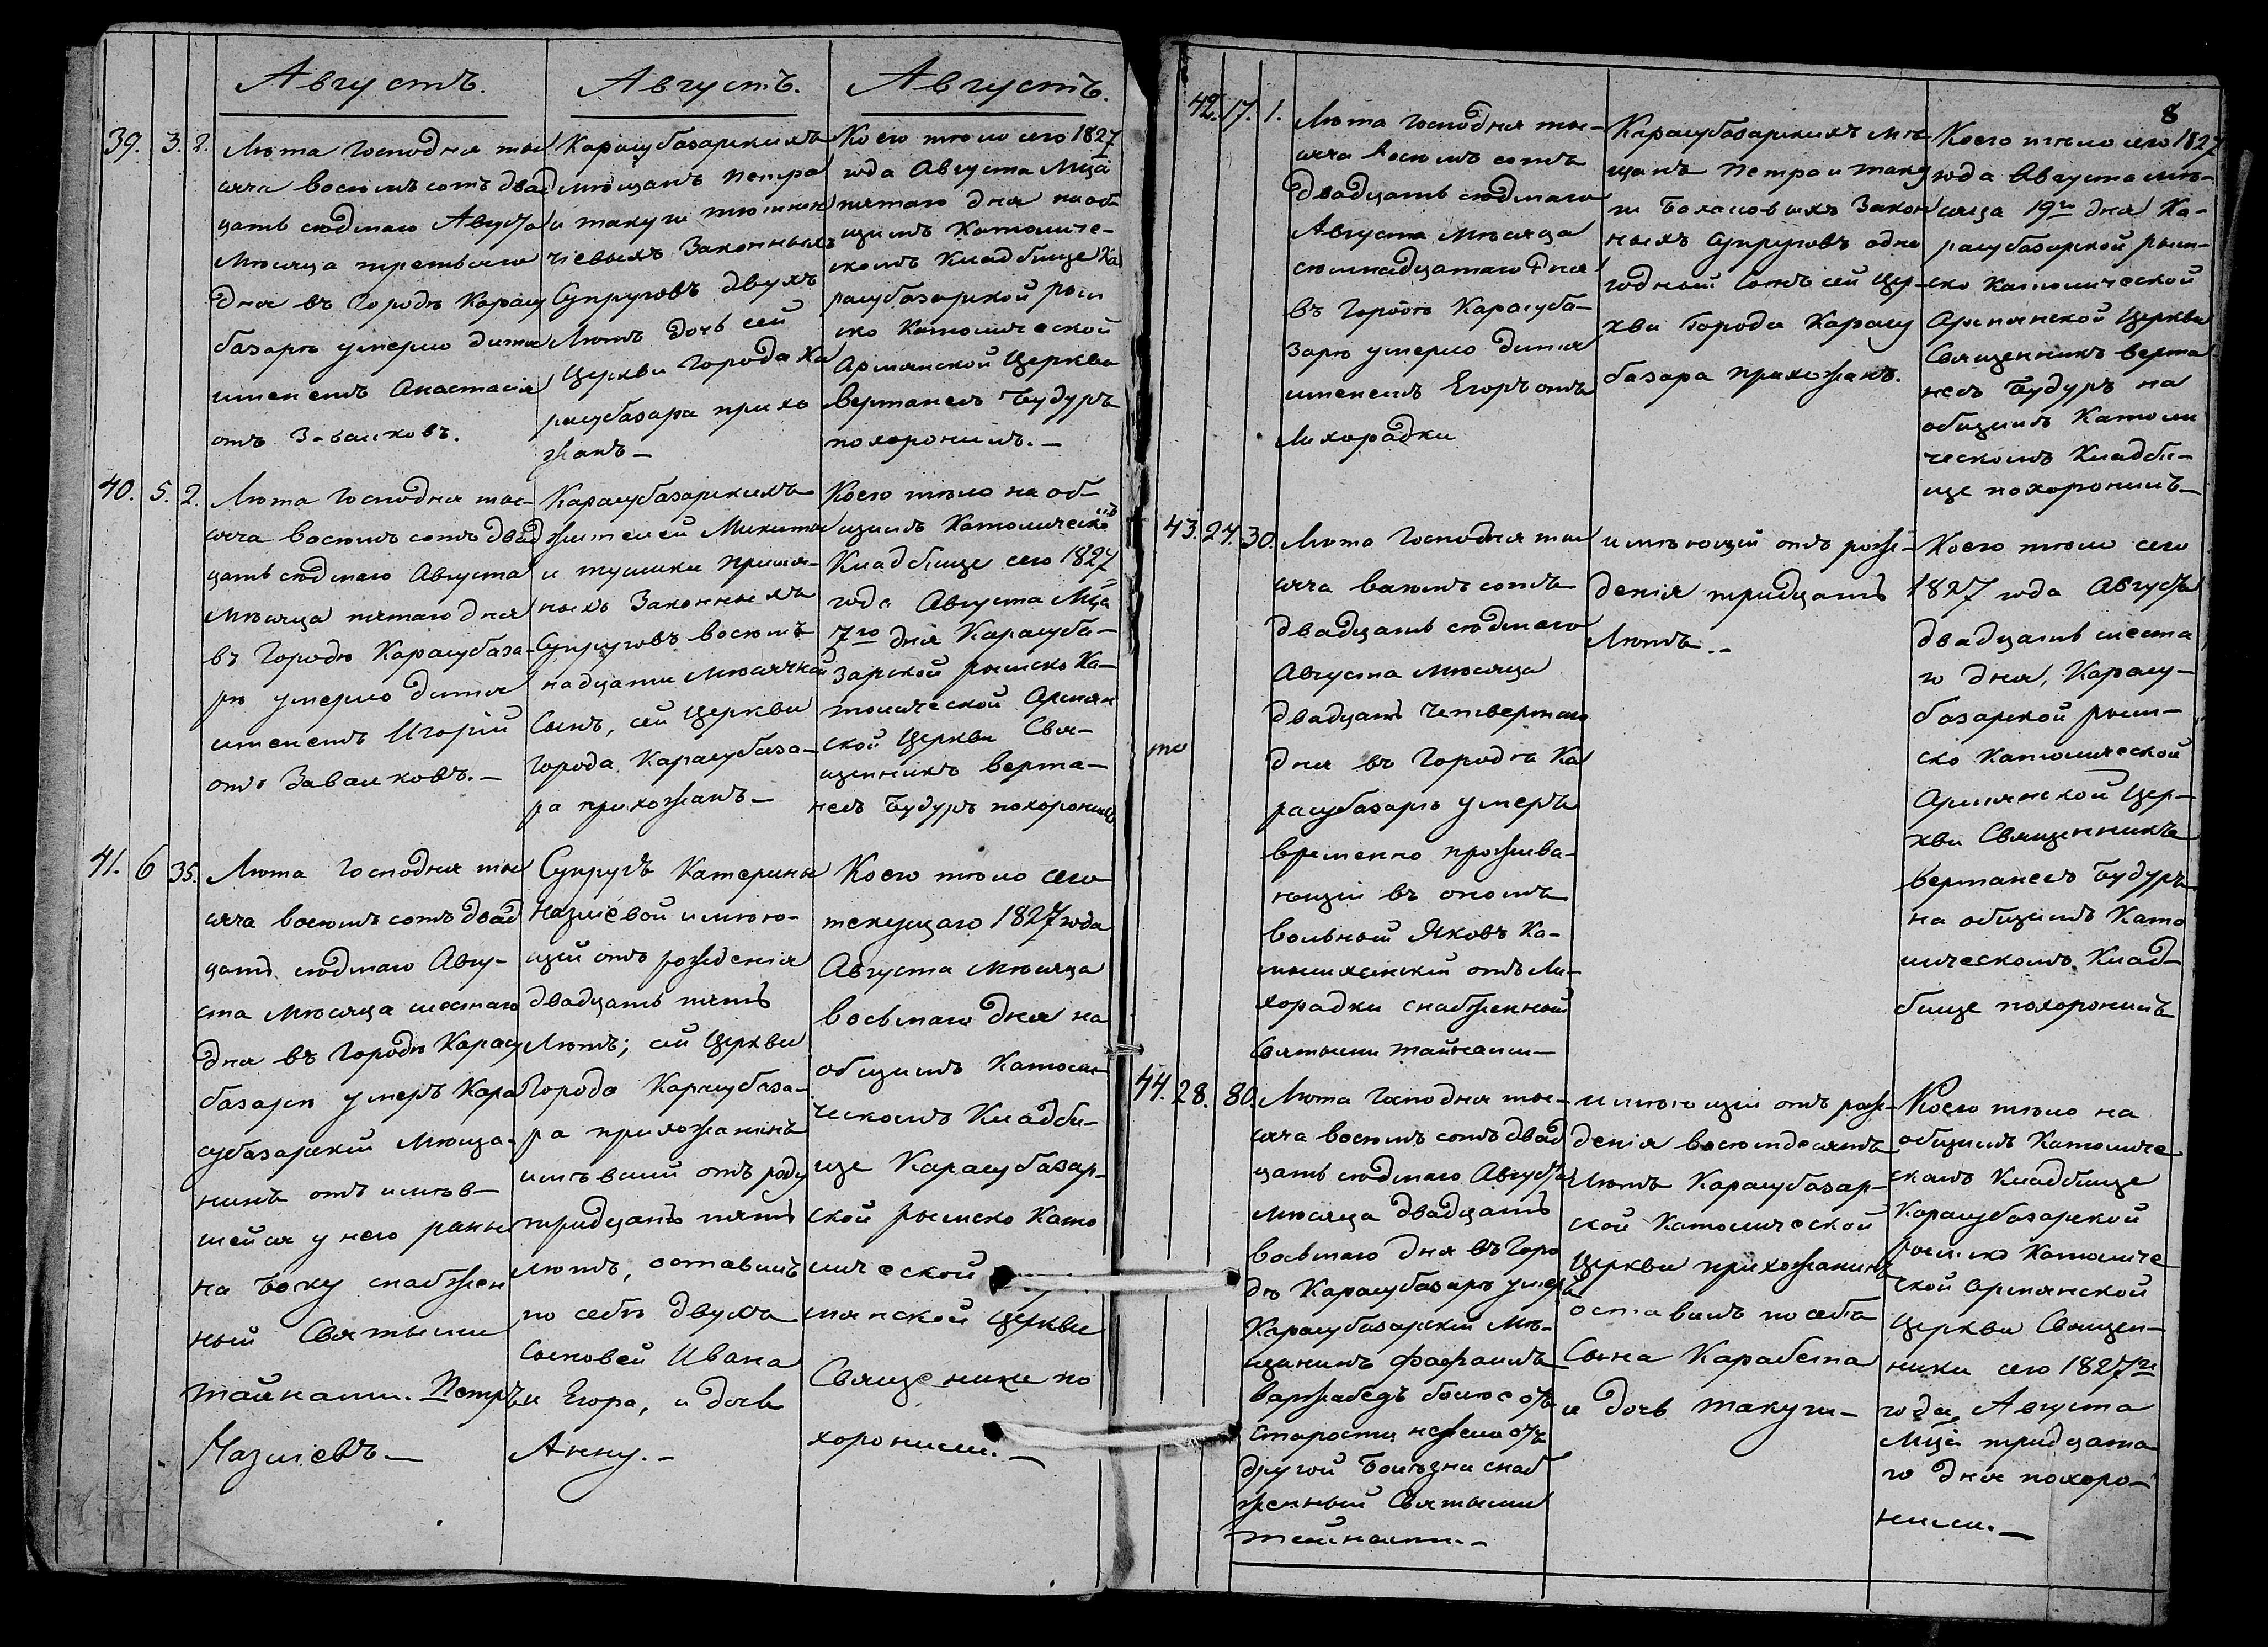 Августъ.
39. 3. 2.
Лѣта Господня ты
сяча восемъ сотъ двад
цать седмаго Августа
Мѣсяца третьяго
дня въ Городѣ Карасу
базарѣ умерло дитя
именемъ Анастасія
отъ Завалковъ.
Августъ.
Карасубазарскихъ
мѣщанъ Петра
и такуги
Законныхъ
Супруговъ двухъ
Лѣтъ дочь сей
Церкви Города Ка
расубазара прихо
жанъ —
Августъ.
Коего тѣло сего 1827
года Августа Мца
пятаго дня на об
щимъ Католиче-
скомъ Кладбище Ка
расубазарской рим
ско Католической
Армянской Церкви
Вертанесъ Будуръ
похоронилъ. —
40. 5. 2.
Лѣта Господня ты-
сяча восемъ сотъ двад
цать седмаго Августа
Мѣсяца пятаго дня
въ Городѣ Карасубаза-
рѣ умерло дитя
именемъ Игорій
отъ Завалковъ. —
Карасубазарскихъ
жителей Микиты
и тушики
Законныхъ
Супруговъ восемъ
надцати Мѣсячной
Сынъ, сей Церкви
города Карасубаза-
ра прихожанъ —
Коего тѣло на об-
щимъ Католическомъ
Кладбище сего 1827
года Августа Мца
7го дня Карасуба-
зарской римско Ка-
толической Армян
ской Церкви Свя-
щенникъ Верта-
несъ Будуръ похоронилъ
41. 6 35.
Лѣта Господня ты
сяча восемъ сотъ двад
цать седмаго Авгу-
ста Мѣсяца шестаго
дня въ Городѣ Карасу
базарѣ умеръ Кара
субазарскій Мѣща-
нинъ отъ имѣв-
шейся у него раны
на Боку снабжен
ный Святыми
тайнами. Петръ
Назлiевъ —
Супругъ Катерины
Назлiевой имѣю-
щей отъ рожденія
двадцать пять
Лѣтъ; сей Церкви
Города Карасубаза-
ра прихожанинъ
имѣвшій отъ роду
тридцать пять
лѣтъ, оставилъ
по себѣ двухъ
Сыновей Ивана
и Егора, и дочь
Анну. —
Коего тѣло сего
текущаго 1827 года
Августа Мѣсяца
восьмаго дня на
общимъ Католи-
ческомъ Кладби-
ще Карасубазар-
ской римско Като
лической
мянской Церкви
Священики по
хоронили. —
8
42. 17. 1.
Лѣта Господня ты-
сяча восемъ сотъ
двадцать седмаго
Августа Мѣсяца
семнадцатаго дня
въ Городѣ Карасуба-
зарѣ умерло дитя
именемъ Егоръ отъ
Лихорадки
Карасубазарскихъ мѣ
щанъ Петра и таку
ги Балановыхъ Закон
ныхъ Супруговъ одно
годный Сынъ сей Цер-
кви Города Карасу
базара прихожанъ.
Коего тѣло сего 1827
года Августа мѣ-
сяца 19го дня Ка-
расубазарской рим-
ско Католической
Армянской Церкви
Священникъ Верта
несъ Будуръ на
общимъ Католи
ческомъ Кладби-
ще похоронилъ —
43. 24. 30.
Лѣта Господня ты
сяча восемъ сотъ
двадцать седмаго
Августа Мѣсяца
двадцать четвертаго
то
дня въ Городѣ Ка
расубазарѣ умеръ
временно прожива-
ющій въ ономъ
вольный Яковъ Ка-
отъ Ли-
хорадки снабженный
Святыми тайнами —
имѣющій отъ рож-
денія тридцать
Лѣтъ. —
Коего тѣло сего
1827 года Августа
двадцать шеста
го дня, Карасу-
базарской рим-
ско Католической
Армянской Цер-
кви Священникъ
Вертанесъ Будуръ
на общимъ Като
лическомъ Клад-
бище похоронилъ
44. 28. 80.
Лѣта Господня ты-
сяча восемъ сотъ двад
цать седмаго Августа
мѣсяца двадцать
восьмаго дня въ Горо
дѣ Карасубазарѣ умеръ
Карасубазарскій Мѣ-
щанинъ Фафаилъ
Варжабедъ болѣе отъ
старости нежели отъ
другой Болѣзни снаб
женный Святыми
тайнами. —
имѣющій отъ рож-
денія восемдесятъ
Лѣтъ Карасубазар-
ской Католической
Церкви прихожанинъ
оставилъ по себѣ
Сына Карабета
и дочь такуги —
Коего тѣло на
общимъ Католиче
скомъ Кладбище
Карасубазарской
римско Католиче
ской Армянской
Церкви Священ-
ники сего 1827го
года Августа
Мца тридцата
го дня похоро-
нили. —